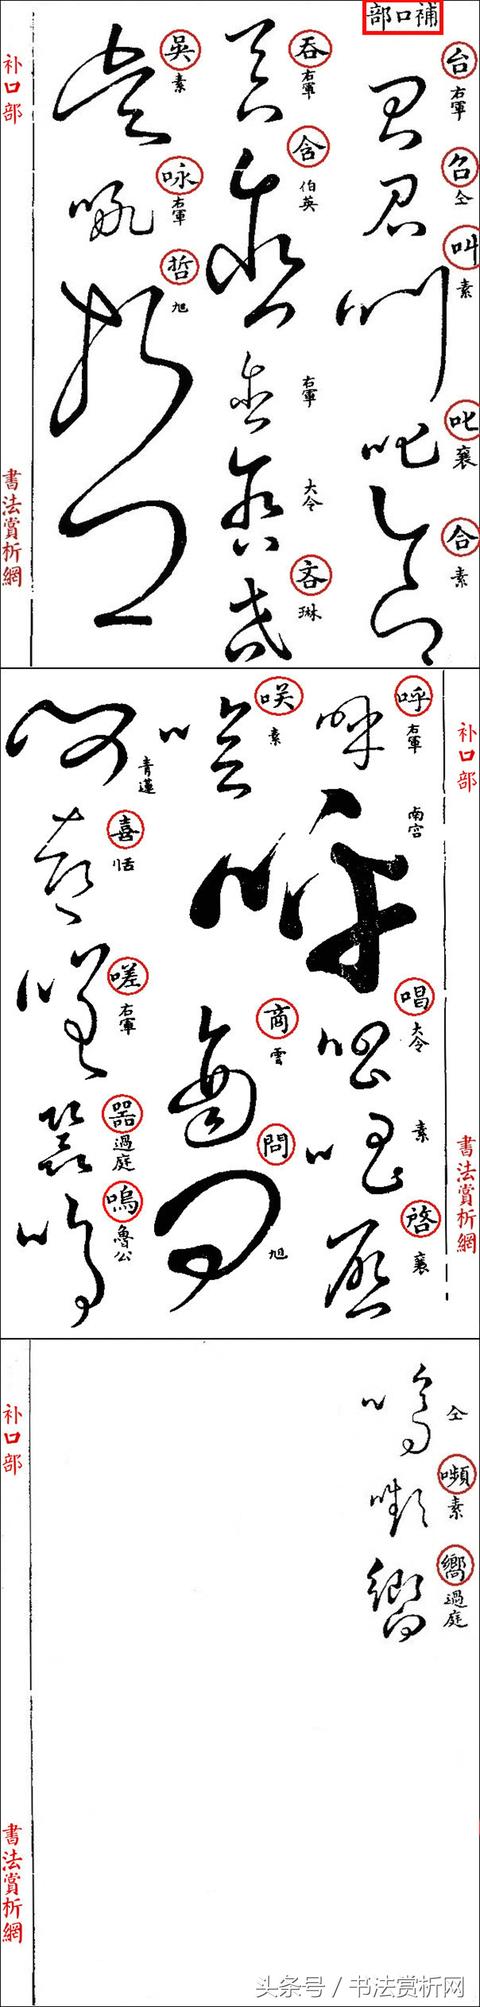 補口部
台 右軍
召 仝
叫 素
叱 襄
合 素
吞 右軍
含 伯英
右軍
大令
吝 琳
吳 素
咏 右軍
哲 旭
补口部
書法賞析網
补口部
書法賞析網
呼 右軍
南宮
唱 大令
素
啓 襄
咲 素
商 雲
問 旭
青蓮
喜 恬
嗟 右軍
器 過庭
嗚 魯公
仝
嚬 素
嚮 過庭
补口部
書法賞析網
头条号／书法赏析网